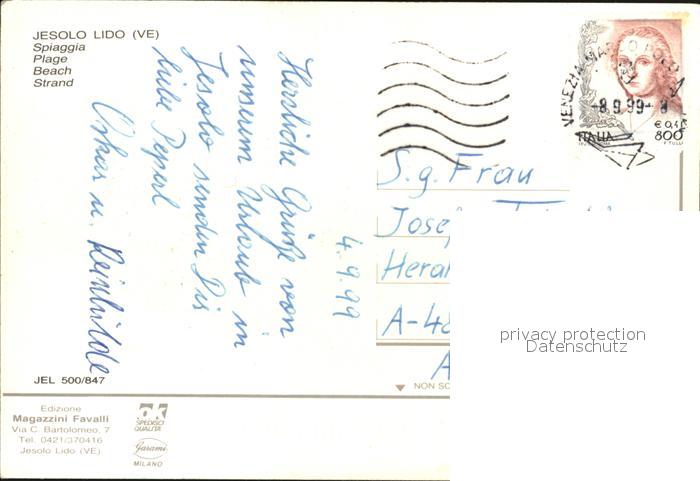 JESOLO LIDO (VE)
Spiaggia
Plage
Beach
Strand
Herzliche Grüße von
unserem Urlaub in
Jesolo senden Dir
liebe Peperl
Oskar u. Reinhilde
4.9.99
VENEZIA MARCO POLO
-8.9.99- 8
ITALIA
€ 0,41
800
S.g. Frau
Josef
Heral
A-48
A
NON SC
privacy protection
Datenschutz
JEL 500/847
Edizione
Magazzini Favalli
Via C. Bartolomeo, 7
Tel. 0421/370416
Jesolo Lido (VE)
ok
SPEDISCI
QUALITÀ
Garami
MILANO